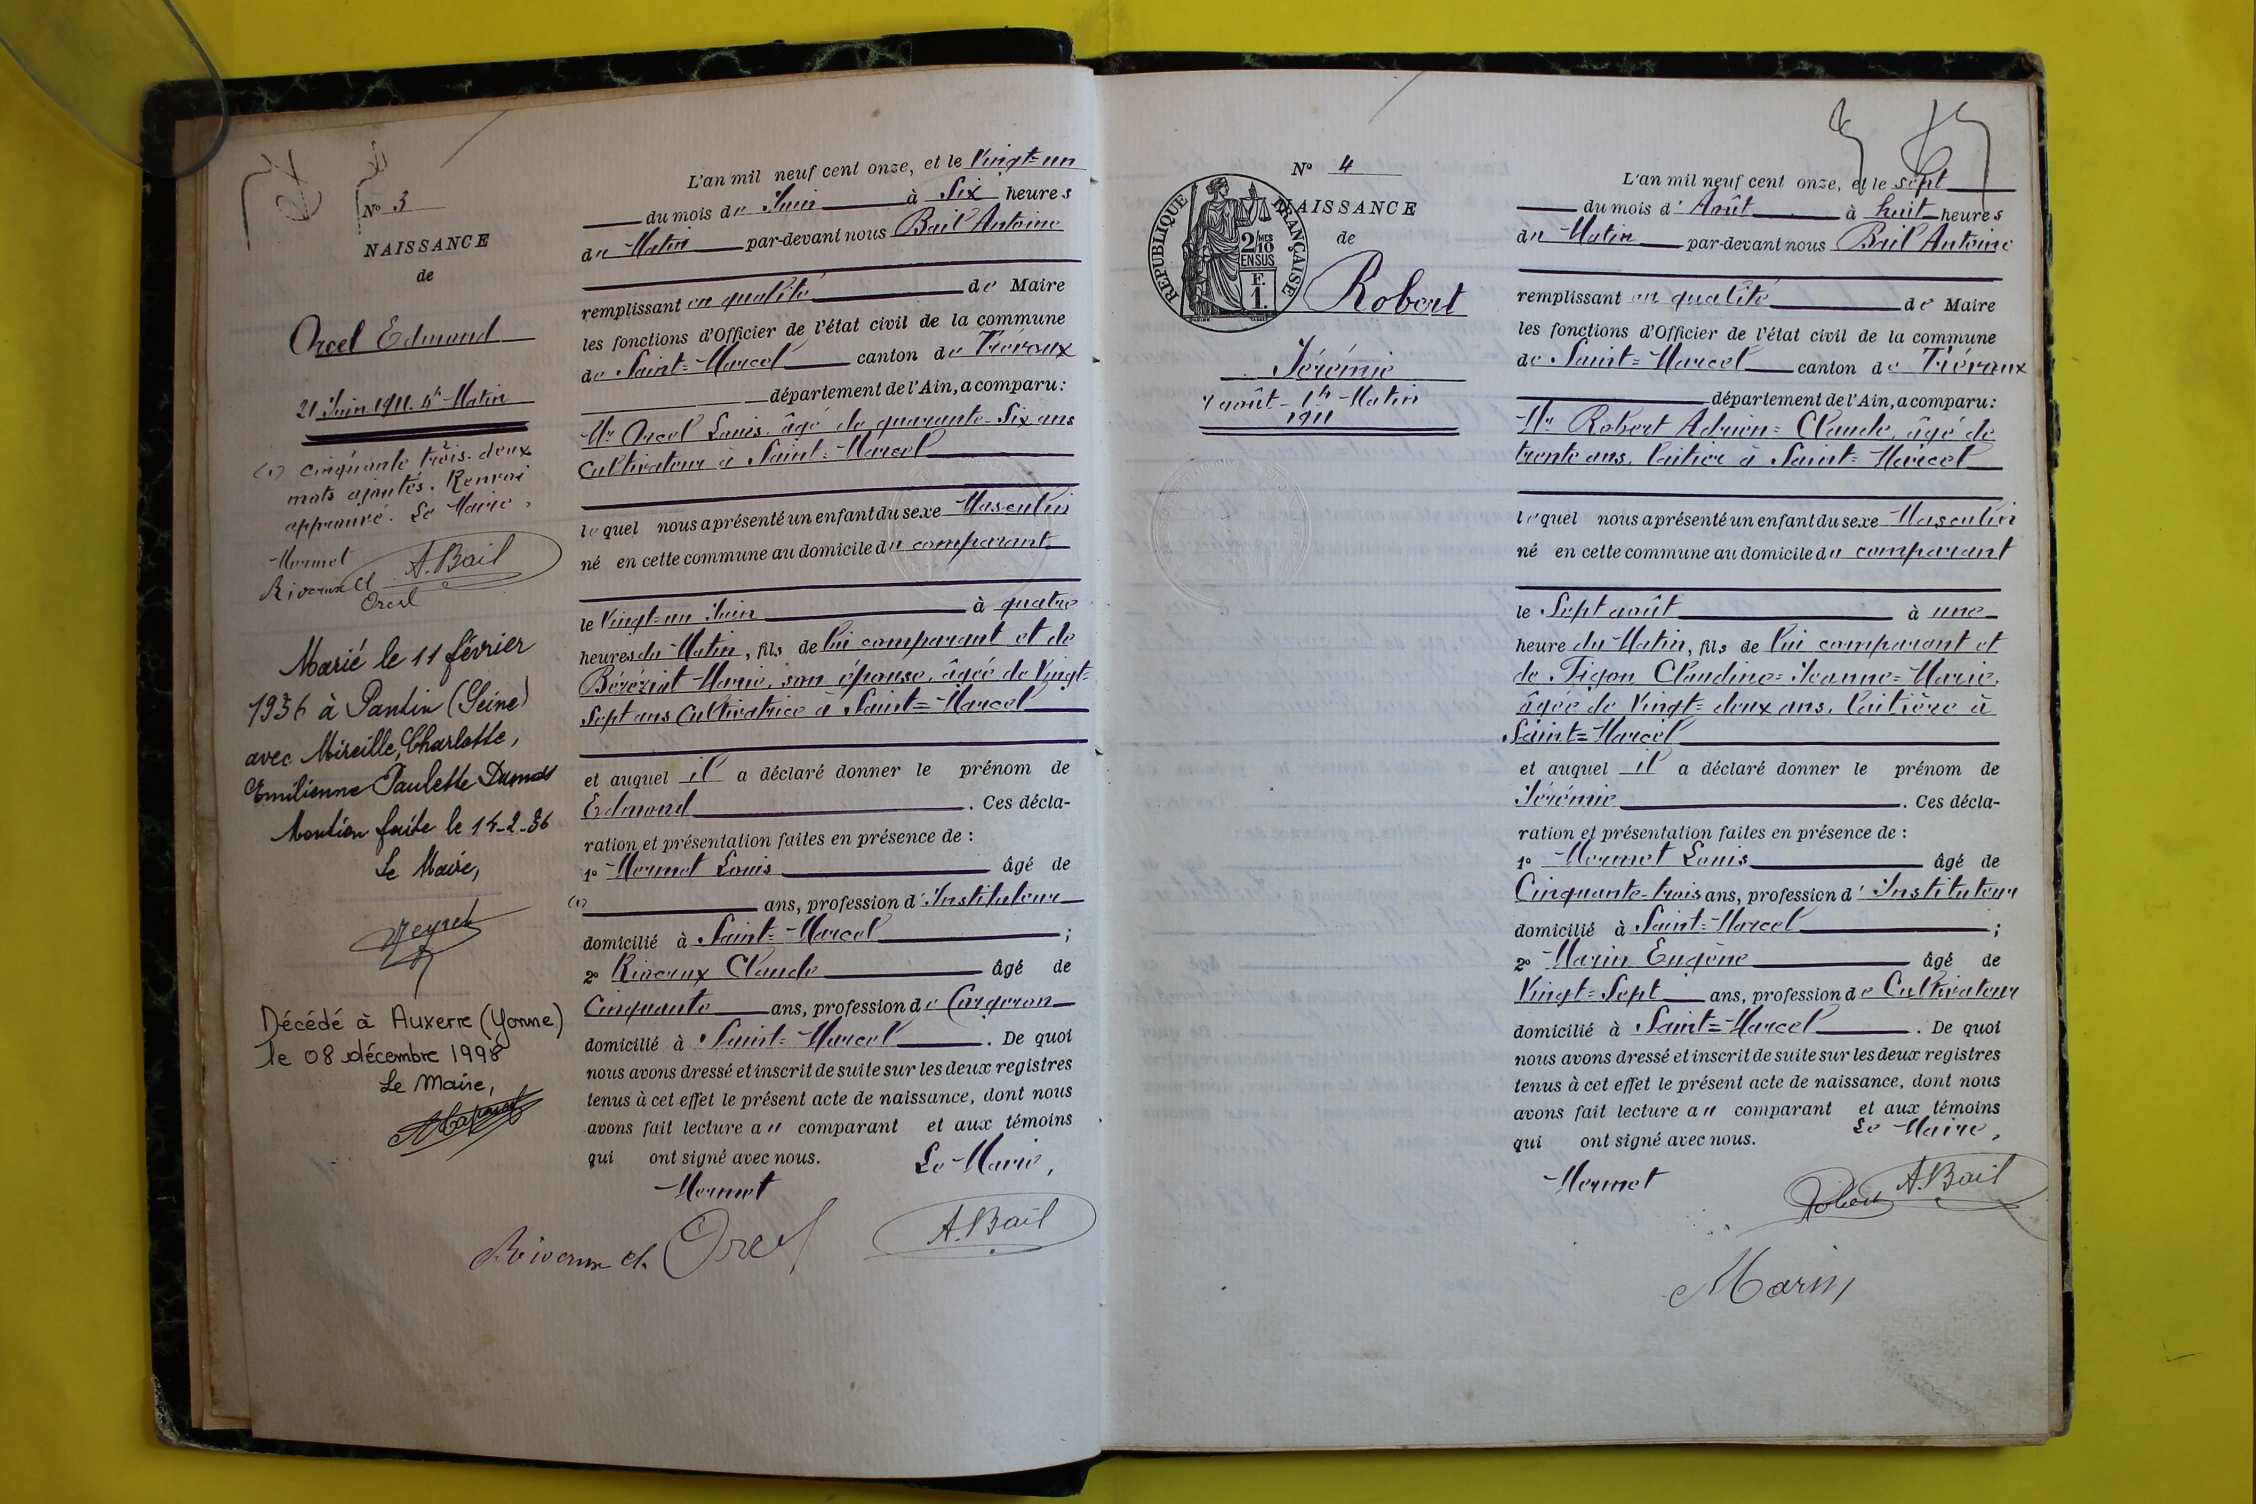 N° 3
NAISSANCE
de
Orcel Edmond
21 Juin 1911. 4h Matin
(1) cinquante trois. deux
mots ajoutés. Renvoi
approuvé. Le Maire,
Mermet
A. Bail
Riveraux Cl
Orcel
Marié le 11 février
1936 à Pantin (Seine)
avec Mireille, Charlotte,
Emilienne Paulette
Mention faite le 14-2-36
Le Maire,
Décédé à Auxerre (Yonne)
le 08 décembre 1998
Le Maire,
L'an mil neuf cent onze, et le Vingt=un
du mois de Juin à Six heures
du Matin par-devant nous Bail Antoine
remplissant en qualité de Maire
les fonctions d'Officier de l'état civil de la commune
de Saint=Marcel canton de Trévoux
département de l'Ain, a comparu:
Mr Orcel Louis, âgé de quarante-Six ans
Cultivateur à Saint=Marcel
lequel nous a présenté un enfant du sexe Masculin
né en cette commune au domicile du comparant
le Vingt=un Juin à quatre
heures du Matin, fils de lui comparant et de
Béréziat Marie, son épouse, âgée de Vingt=
Sept ans Cultivatrice à Saint=Marcel
et auquel il a déclaré donner le prénom de
Edmond. Ces décla-
ration et présentation faites en présence de:
1° Mermet Louis âgé de
(1) ans, profession d'Instituteur
domicilié à Saint=Marcel;
2° Riveraux Claude âgé de
Cinquante ans, profession de
domicilié à Saint=Marcel. De quoi
nous avons dressé et inscrit de suite sur les deux registres
tenus à cet effet le présent acte de naissance, dont nous
avons fait lecture au comparant et aux témoins
qui ont signé avec nous.
Le Maire,
Mermet
A. Bail
Orcel
N° 4
NAISSANCE
de
RÉPUBLIQUE FRANÇAISE
2/10 MES
EN SUS
F.
1.
Robert
Jérémie
7 août - 1h Matin
1911
L'an mil neuf cent onze, et le sept
du mois d'Août à huit heures
du Matin par-devant nous Bail Antoine
remplissant en qualité de Maire
les fonctions d'Officier de l'état civil de la commune
de Saint=Marcel canton de Trévoux
département de l'Ain, a comparu:
Mr Robert Adrien=Claude, âgé de
trente ans, laitier à Saint=Marcel
lequel nous a présenté un enfant du sexe Masculin
né en cette commune au domicile du comparant
le Sept août à une
heure du Matin, fils de lui comparant et
de Tigon Claudine=Jeanne=Marie,
âgée de Vingt=deux ans, laitière à
Saint=Marcel
et auquel il a déclaré donner le prénom de
Jérémie. Ces décla-
ration et présentation faites en présence de:
1° Mermet Louis âgé de
Cinquante-trois ans, profession d'Instituteur
domicilié à Saint=Marcel;
2° Marin Eugène âgé de
Vingt=Sept ans, profession de Cultivateur
domicilié à Saint=Marcel. De quoi
nous avons dressé et inscrit de suite sur les deux registres
tenus à cet effet le présent acte de naissance, dont nous
avons fait lecture au comparant et aux témoins
qui ont signé avec nous.
Le Maire,
Mermet
Robert
A. Bail
Marin